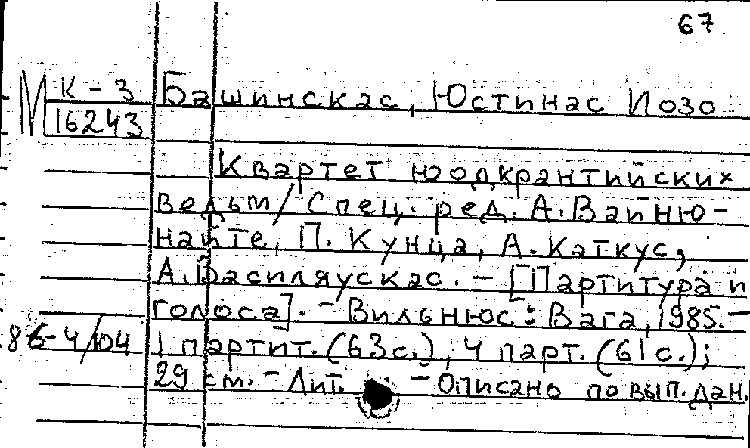 67
М К-3 Башинскас, Юстинас Йозо
16243
Квартет юодкрантийских
ведьм / Спец. ред. А. Вайню-
найте, П. Кунца, А. Каткус,
А. Василяускас. - [Партитура и
голоса]. - Вильнюс: Вага, 1985. -
86-4/104 1 партит. (63с.), 4 парт. (61с.);
29 см. - Лит. - Описано по вып. дан.